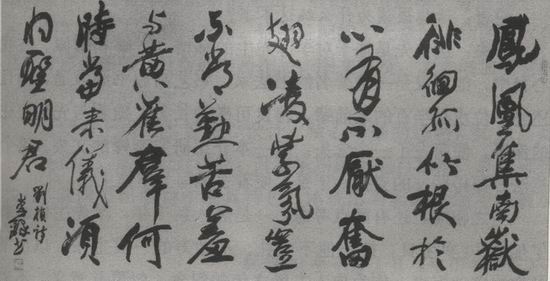 鳳凰集南嶽
徘徊孤竹根於
心有不厭奮
翅凌紫氛豈
不常勤苦羞
与黄雀羣何
時當来儀須
向聖明君
劉楨詩
李鐸书